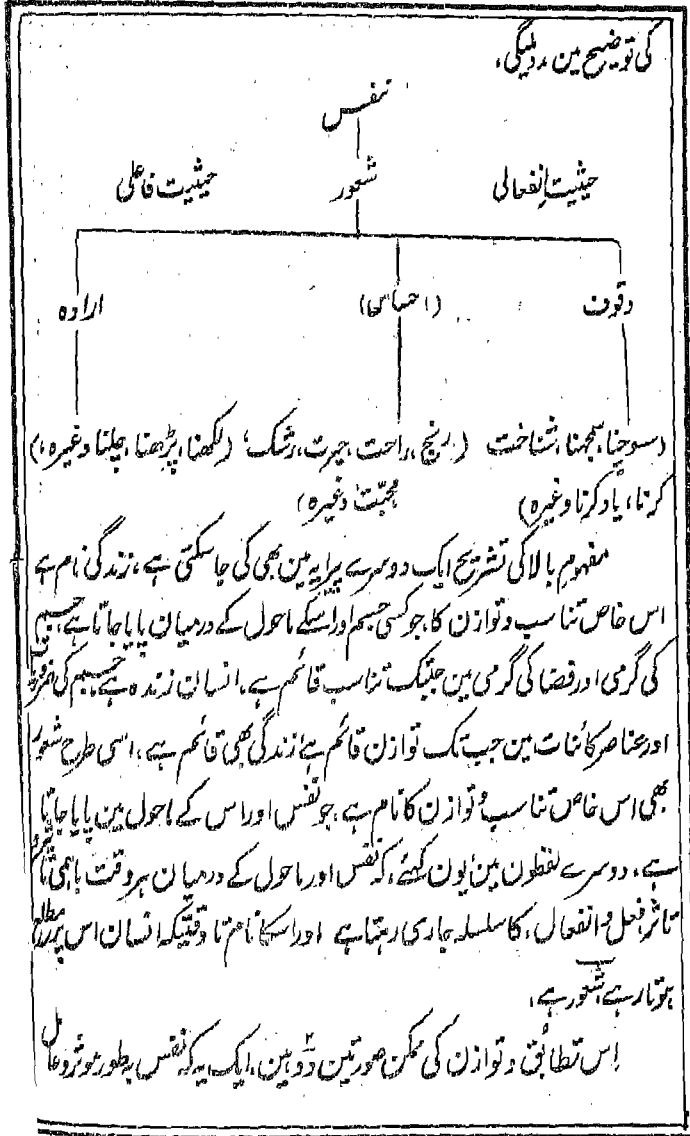 کی توضیح مین مدد ملیگی،
نفس
حیثیت اِنفعالی شعور حیثیت فاعلی
وقوف (احساس) ارادہ
(سوچنا، سمجھنا، شناخت (رنج، راحت، حیرت، رشک، (لکھنا، پڑھنا، چلنا وغیرہ،)
کرنا، یاد کرنا وغیرہ) محبّت وغیرہ)
مفہومِ بالا کی تشریح ایک دوسرے پیرایہ مین بھی کی جاسکتی ہے، زندگی نام ہے
اس خاص تناسب و توازن کا، جو کسی جسم اور اسکے ماحول کے درمیان پایا جاتا ہے، جسم
کی گرمی اور فضا کی گرمی مین جبتک تناسب قائم ہے، انسان زندہ ہے، جسم کی
اور عناصر کائنات مین جب تک توازن قائم ہے زندگی بھی قائم ہے، اسی طرح شعور
بھی اس خاص تناسب و توازن کا نام ہے، جو نفس اور اس کے ماحول مین پایا جاتا
ہے، دوسرے لفظون مین یون کہئے، کہ نفس اور ماحول کے درمیان ہر وقت باہمی تاثیر و
تاثر، فعل و انفعال، کا سلسلہ جاری رہتا ہے اور اسکا نام تا وقتیکہ انسان اس پر مطلع
ہوتا رہے شعور ہے،
اِس تطابُق و توازن کی ممکن صورتین دو ہین، ایک یہ کہ نفس بطور موثر و عامل